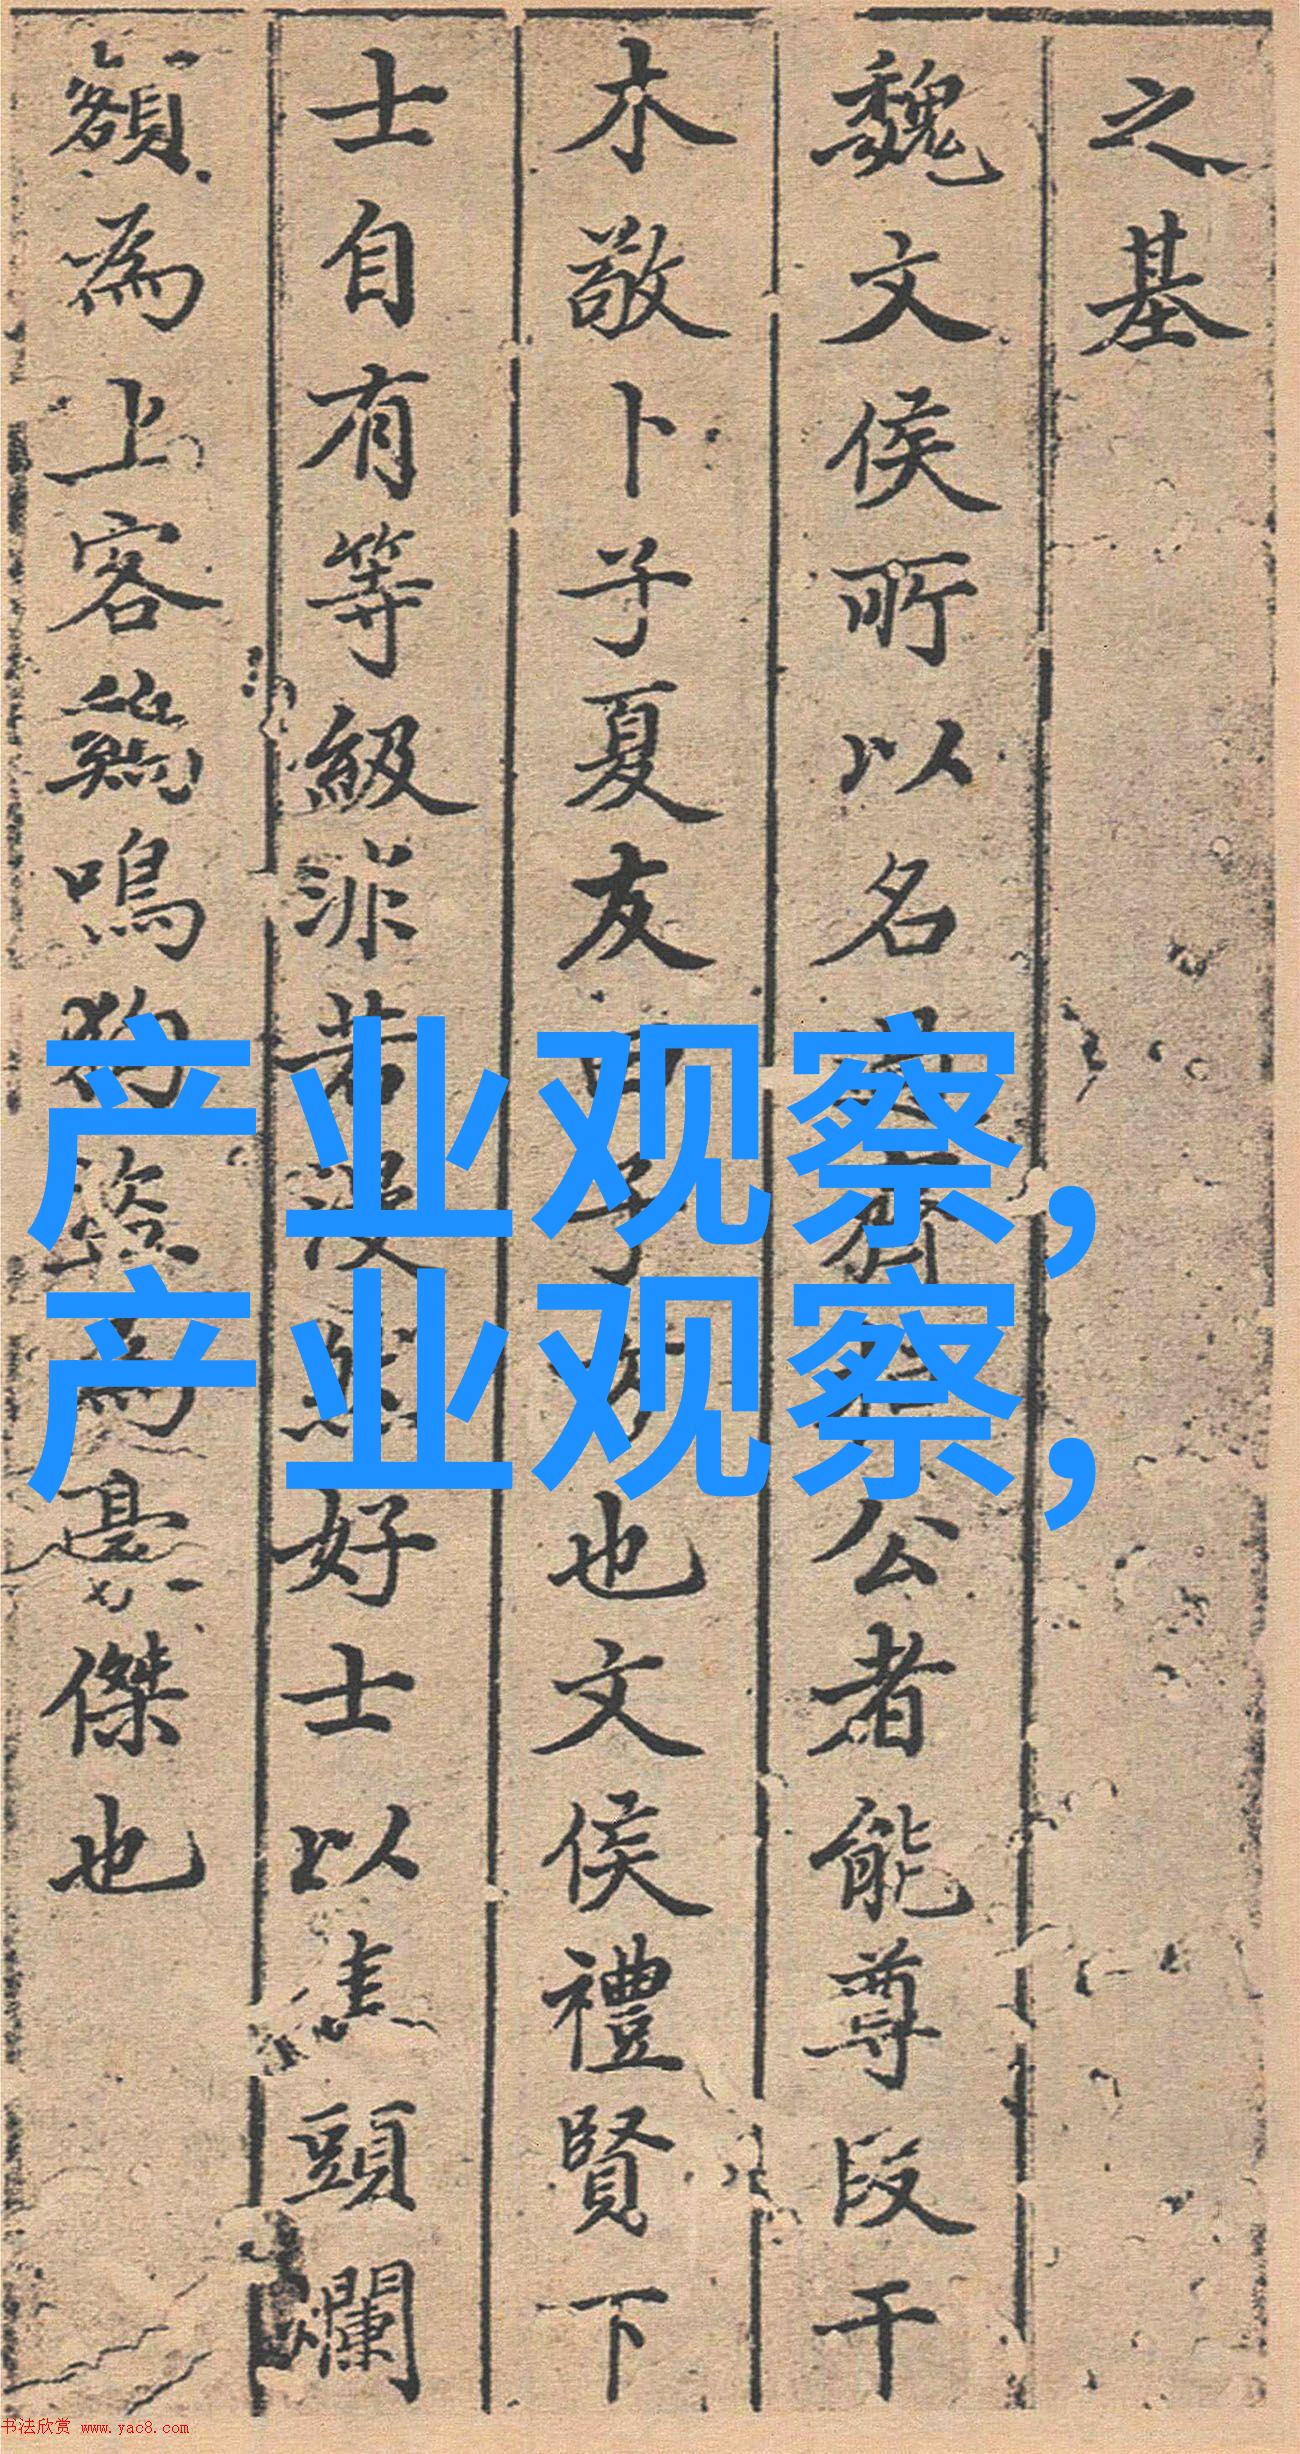 之基
魏文侯所以名齊公者能尊段干
木敬卜子夏友田子方也文侯禮賢下
士自有等級非若漫然好士以焦頭爛
額為上客鷄鳴狗盜為豪傑也
产业观察,
产业观察,
书法欣赏 www.yac8.com